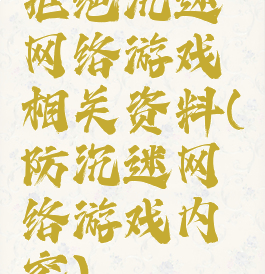 拒绝沉迷
网络游戏
相关资料(
防沉迷网
络游戏内
容)